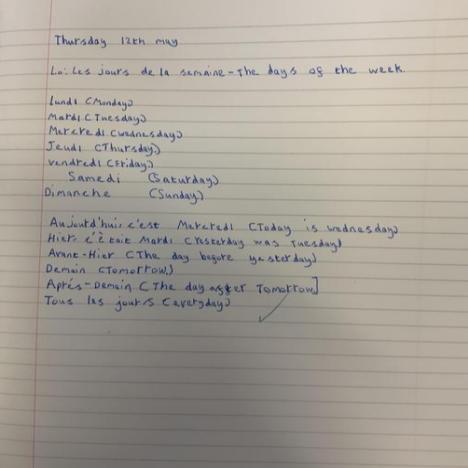 Thursday 12th may
Lo: Les jours de la semaine - The days of the week.
Lundi (Monday)
Mardi (Tuesday)
Mercredi (wednesday)
Jeudi (Thursday)
vendredi (Friday)
Samedi (Saturday)
Dimanche (Sunday)
Aujourd'hui c'est Mercredi (Today is wednesday)
Hier c'était Mardi (Yesterday was Tuesday)
Avant-Hier (The day before yesterday)
Demain (Tomorrow)
Aprés-Demain (The day after Tomorrow]
Tous les jours (everyday)